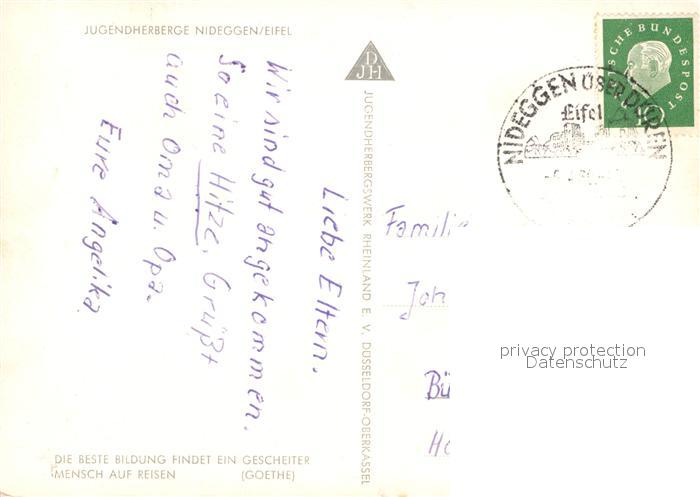 JUGENDHERBERGE NIDEGGEN/EIFEL
Liebe Eltern.
Wir sind gut angekommen.
So eine Hitze. Grüßt
auch Oma u. Opa.
Eure Angelika
DIE BESTE BILDUNG FINDET EIN GESCHEITER
MENSCH AUF REISEN (GOETHE)
DJH
JUGENDHERBERGSWERK RHEINLAND E. V. DÜSSELDORF-OBERKASSEL
SCHE BUNDESPOST
10
NIDEGGEN ÜBER DÜREN
Eifel
Familie
Joh
Bü
privacy protection
Datenschutz